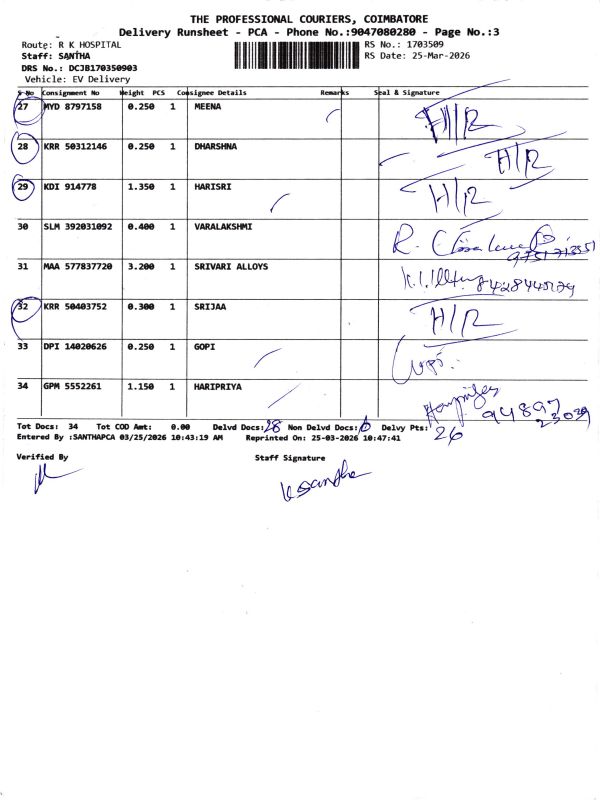 THE PROFESSIONAL COURIERS, COIMBATORE
Delivery Runsheet - PCA - Phone No.:9047080280 - Page No.:3
Route: R K HOSPITAL RS No.: 1703509
Staff: SANTHA RS Date: 25-Mar-2026
DRS No.: DCJB170350903
Vehicle: EV Delivery
S No Consignment No Weight PCS Consignee Details Remarks Seal & Signature
27 MYD 8797158 0.250 1 MEENA H/R
28 KRR 50312146 0.250 1 DHARSHNA H/R
29 KDI 914778 1.350 1 HARISRI H/R
30 SLM 392031092 0.400 1 VARALAKSHMI R.
31 MAA 577837720 3.200 1 SRIVARI ALLOYS
32 KRR 50403752 0.300 1 SRIJAA H/R
33 DPI 14020626 0.250 1 GOPI Gopi.
34 GPM 5552261 1.150 1 HARIPRIYA 94897 23029
Tot Docs: 34 Tot COD Amt: 0.00 Delvd Docs: 28 Non Delvd Docs: 6 Delvy Pts: 26
Entered By :SANTHAPCA 03/25/2026 10:43:19 AM Reprinted On: 25-03-2026 10:47:41
Verified By Staff Signature